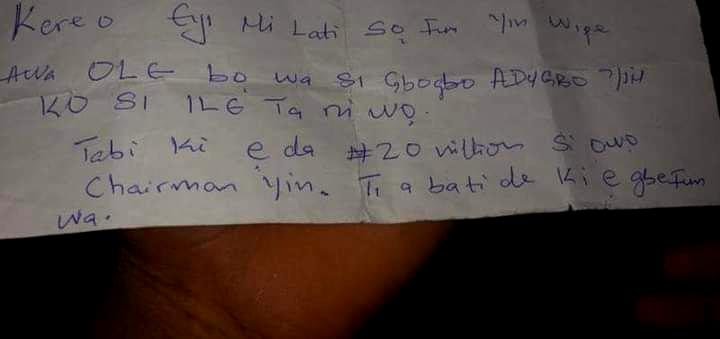 Kere o Eyi Mi Lati sọ Fun Yin wipe
AWA OLE bọ wa si Gbogbo ADUGBO YIN
KO SI ILE Ta ni wọ.
Tabi ki e da ₦20 million si owo
Chairman Yin. Ti a bati de ki e gbe Fun
Wa.